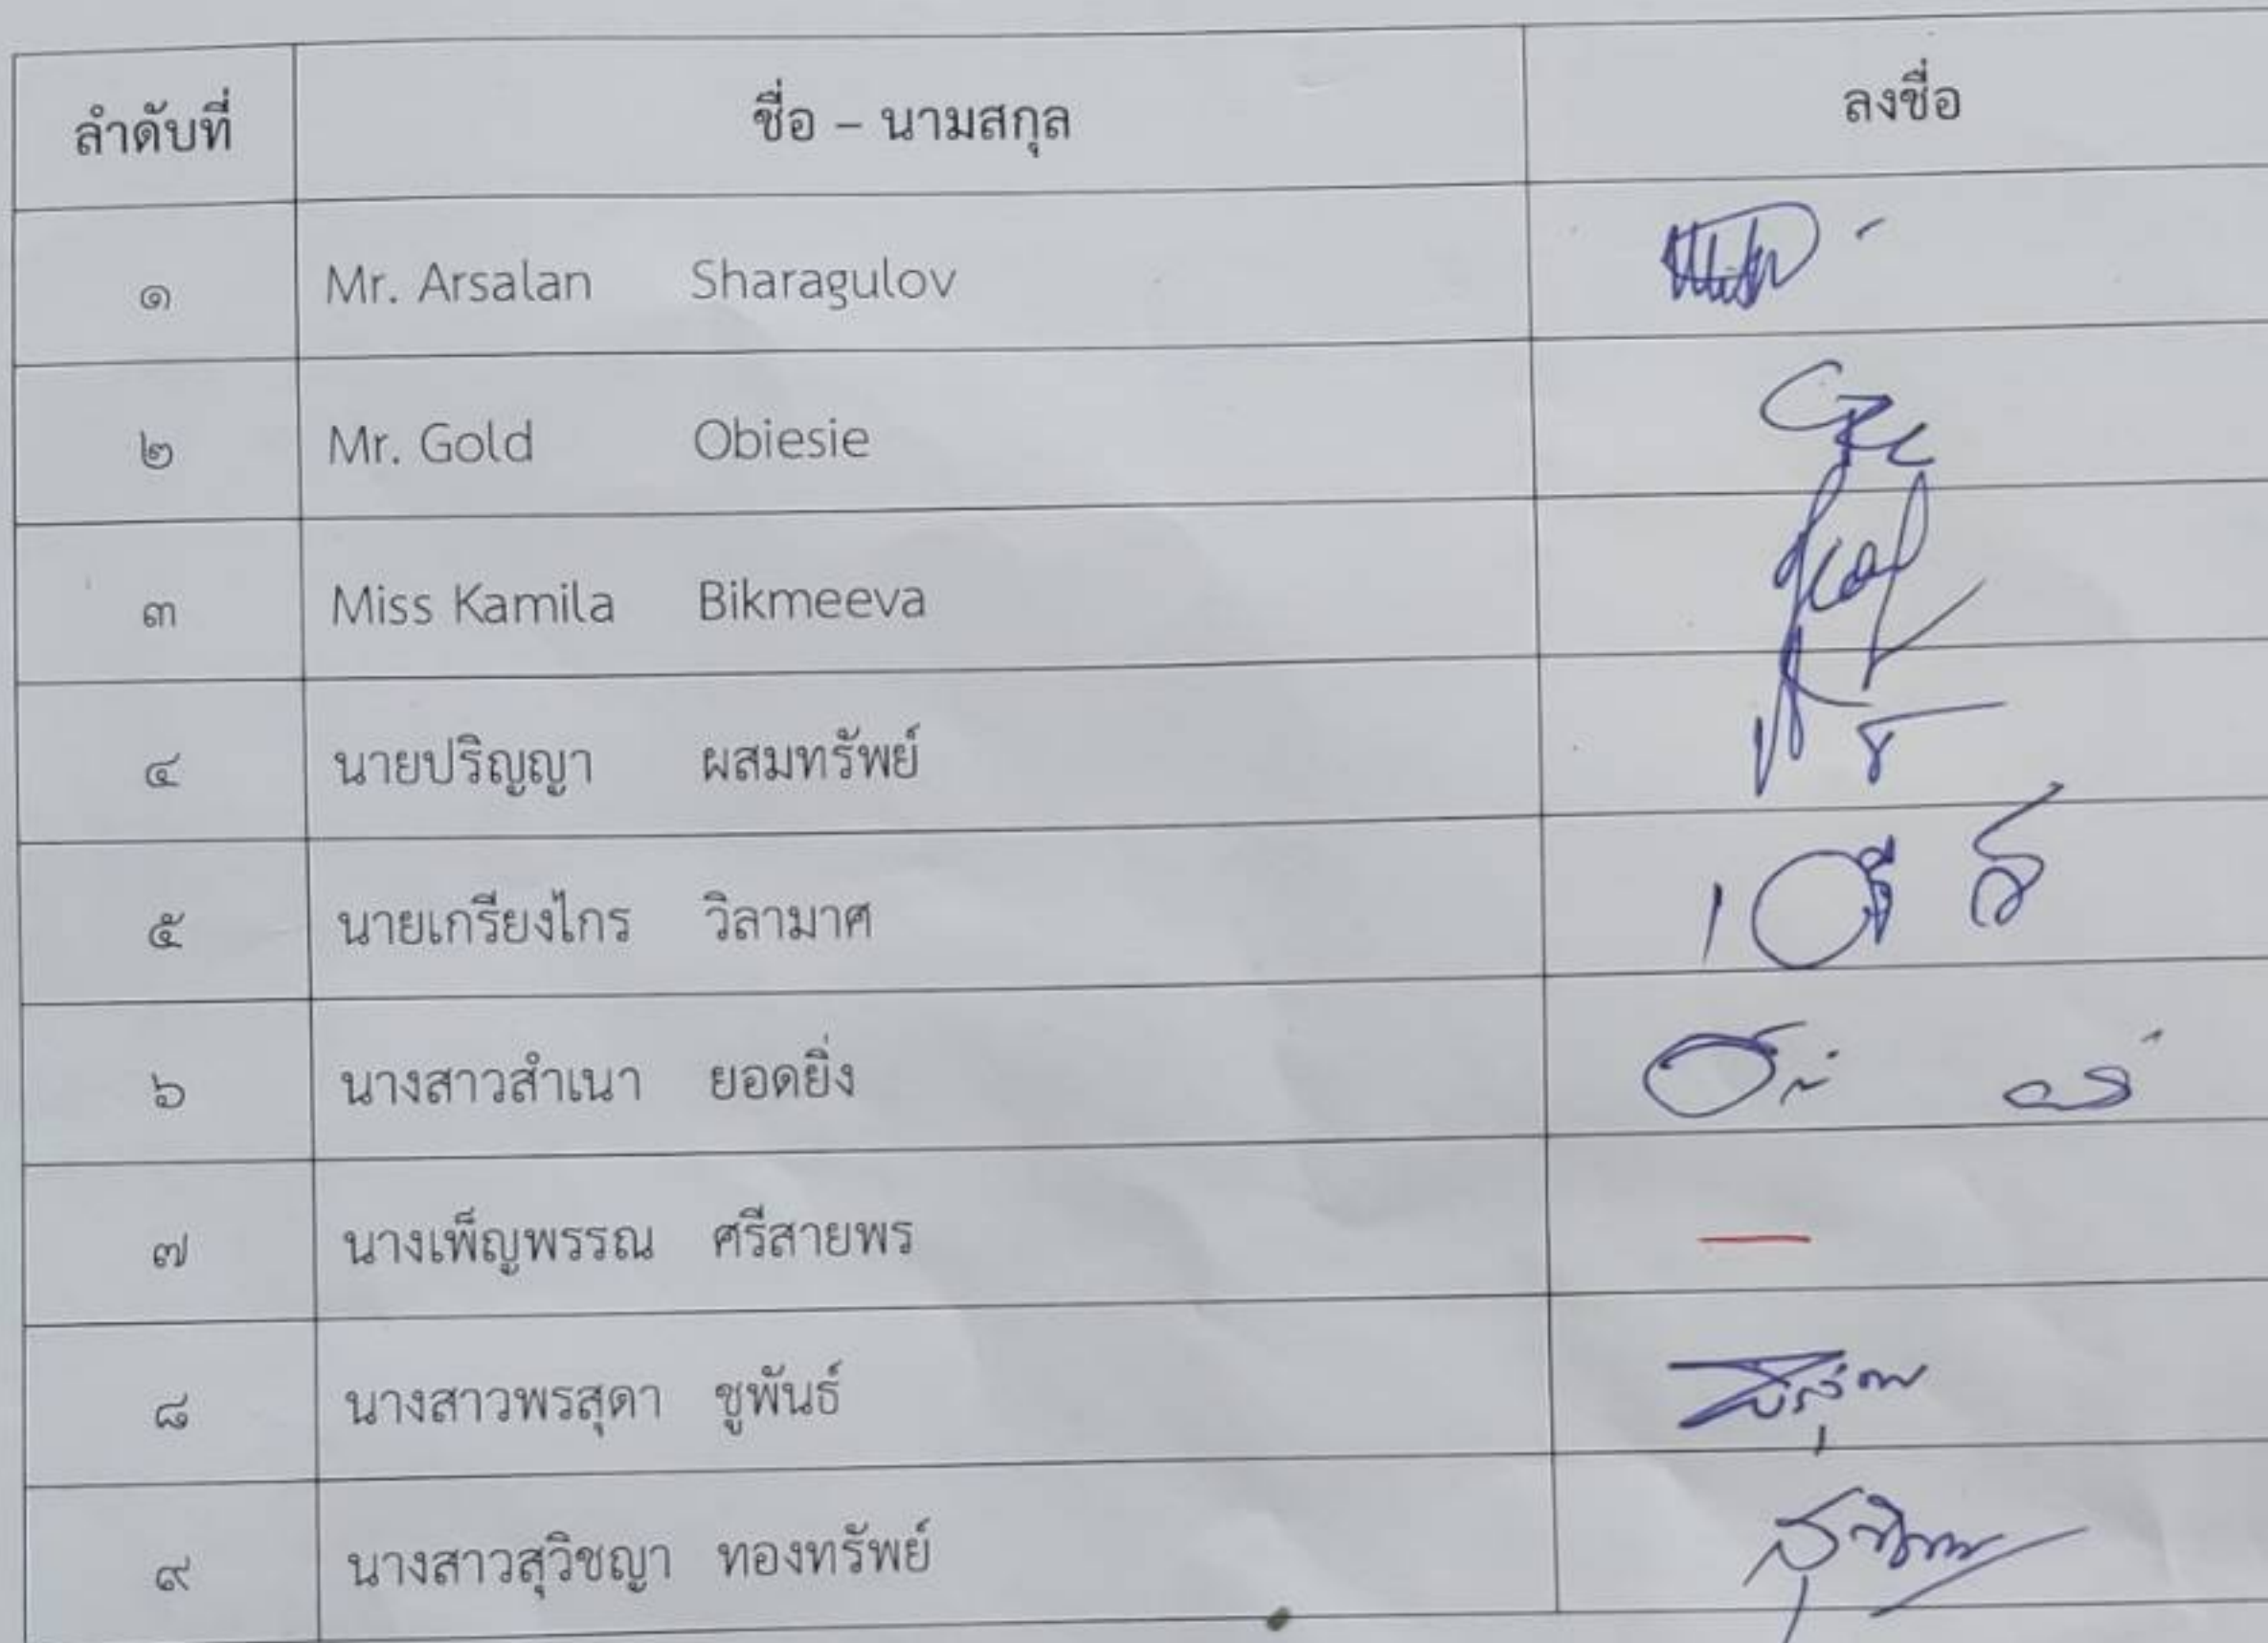 ลำดับที่ ชื่อ – นามสกุล ลงชื่อ
๑ Mr. Arsalan Sharagulov
๒ Mr. Gold Obiesie
๓ Miss Kamila Bikmeeva
๔ นายปริญญา ผสมทรัพย์
๕ นายเกรียงไกร วิลามาศ
๖ นางสาวสำเนา ยอดยิ่ง
๗ นางเพ็ญพรรณ ศรีสายพร
๘ นางสาวพรสุดา ชูพันธ์
๙ นางสาวสุวิชญา ทองทรัพย์